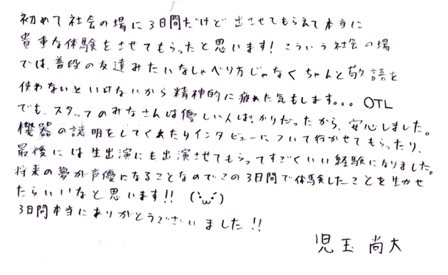 初めて社会の場に3日間だけど出させてもらえて本当に
貴重な体験をさせてもらったと思います！こういう社会の場
では、普段の友達みたいなしゃべり方じゃなくちゃんと敬語を
使わないといけないから精神的に疲れた気もします... OTL
でも、スタッフのみなさんは優しい人ばっかりだったから、安心しました。
機器の説明をしてくれたりインタビューについて行かせてもらったり、
最後には生出演にも出演させてもらってすごくいい経験になりました。
将来の夢が声優になることなのでこの3日間で体験したことを生かせ
たらいいなと思います!! (`・ω・´)
3日間本当にありがとうございました!!
児玉 尚大